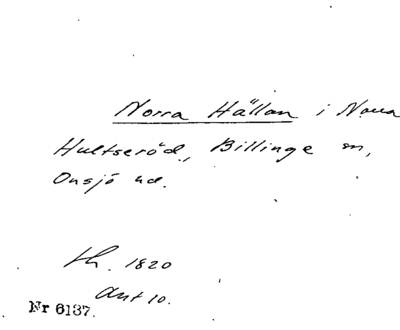 Norra Hällan i Norra
Hultseröd, Billinge sn,
Onsjö hd.
th. 1820
Ant 10.
Nr 6137.